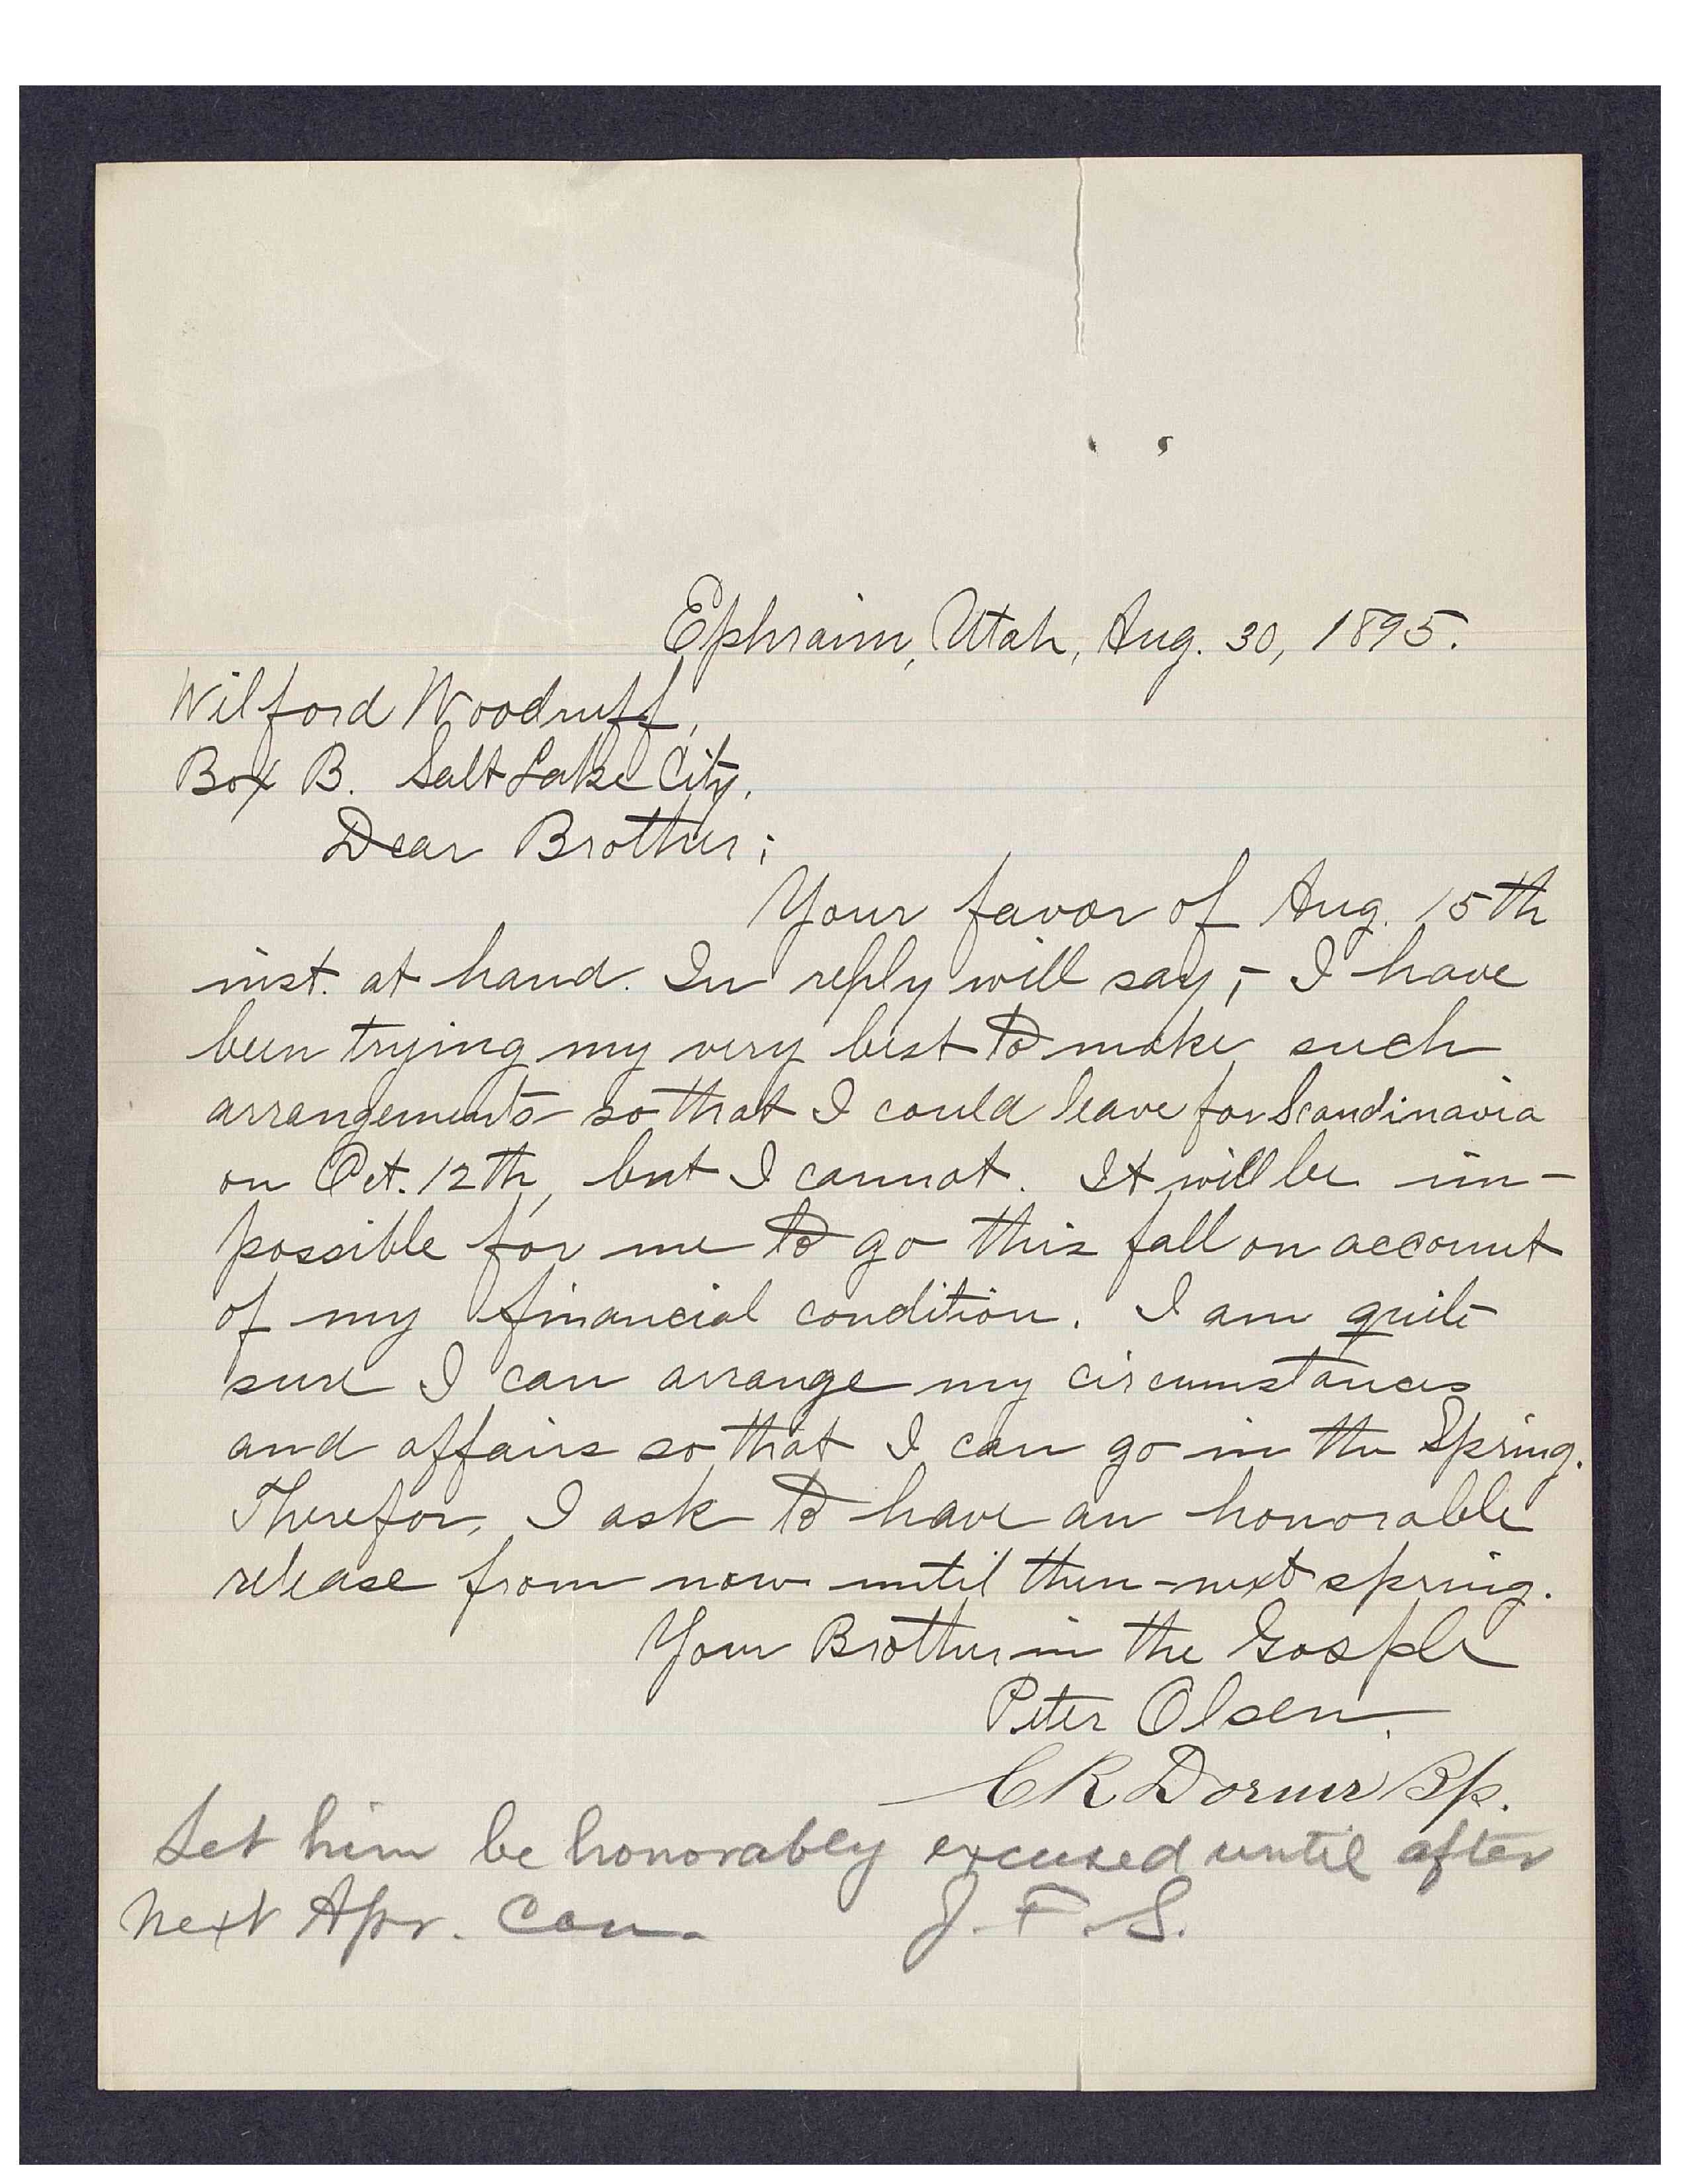 Ephraim, Utah, Aug. 30, 1895.
Wilford Woodruff,
Box B. Salt Lake City.
Dear Brother;
Your favor of Aug. 15th
inst. at hand. In reply will say,- I have
been trying my very best to make such
arrangements so that I could leave for Scandinavia
on Oct. 12th, but I cannot. It will be im-
possible for me to go this fall on account
of my financial condition. I am quite
sure I can arrange my circumstances
and affairs so that I can go in the Spring.
Therefor, I ask to have an honorable
release from now until then-next spring.
Your Brother in the Gospel
Peter Olsen.
C R Dorius Bp.
Let him be honorably excused until after
next Apr. Con. J. F. S.